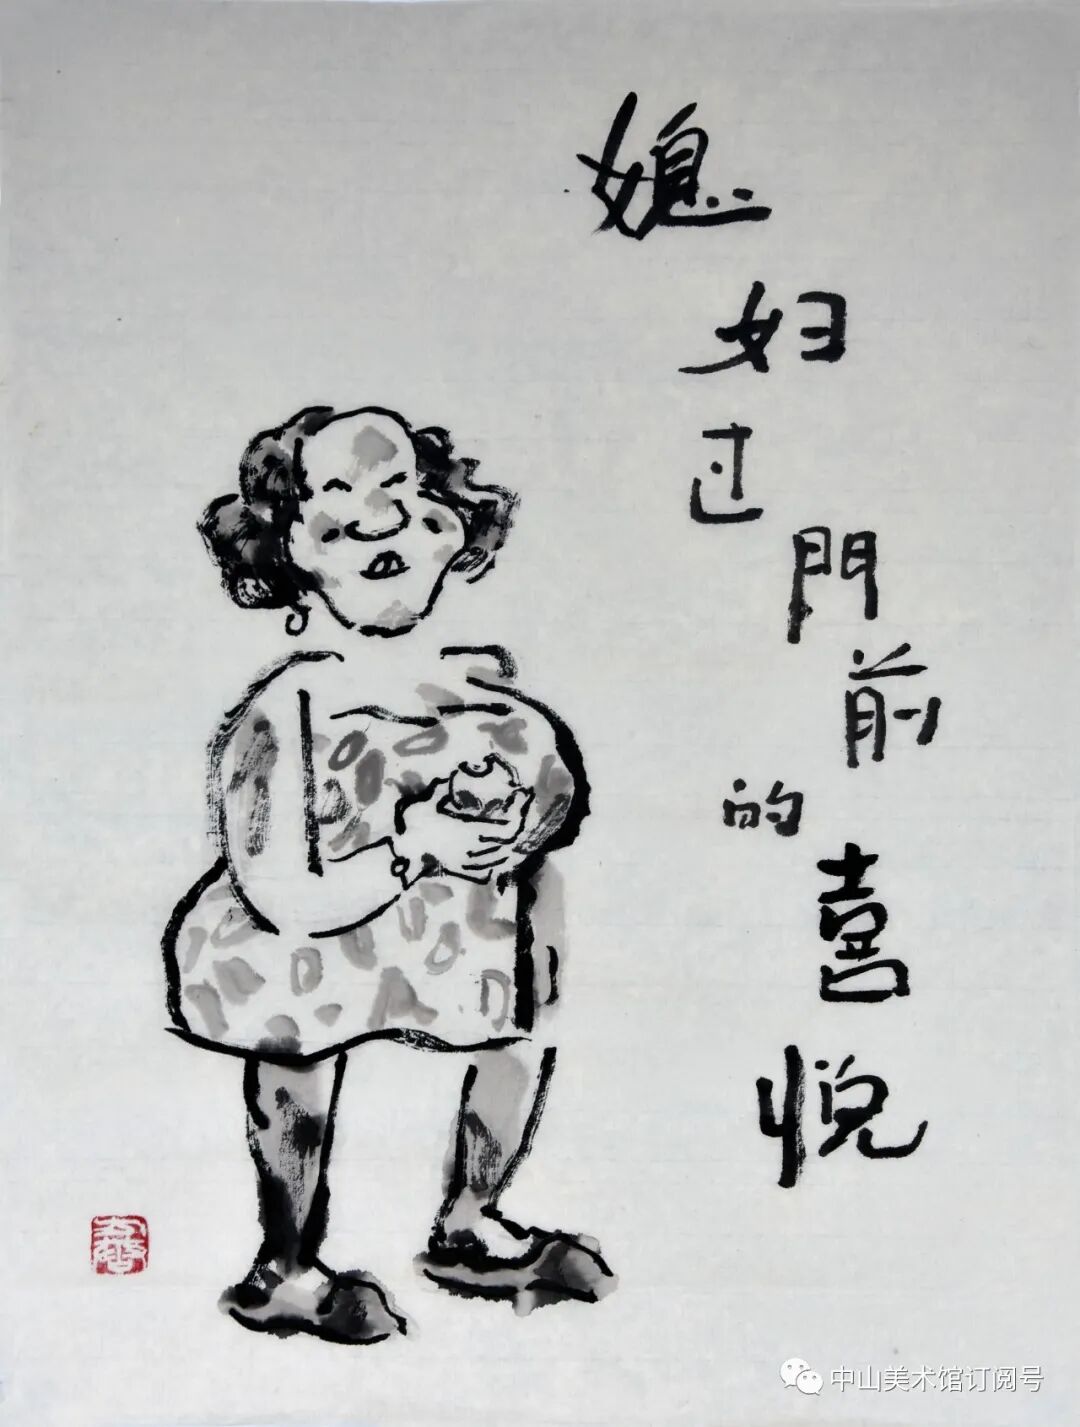 媳妇过門前的喜悦
中山美术馆订阅号